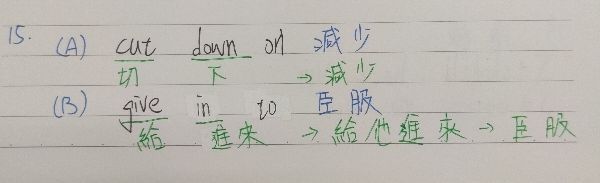 15. (A) cut down on 減少
切 下 → 減少
(B) give in to 臣服
給 進來 → 給他進來 → 臣服